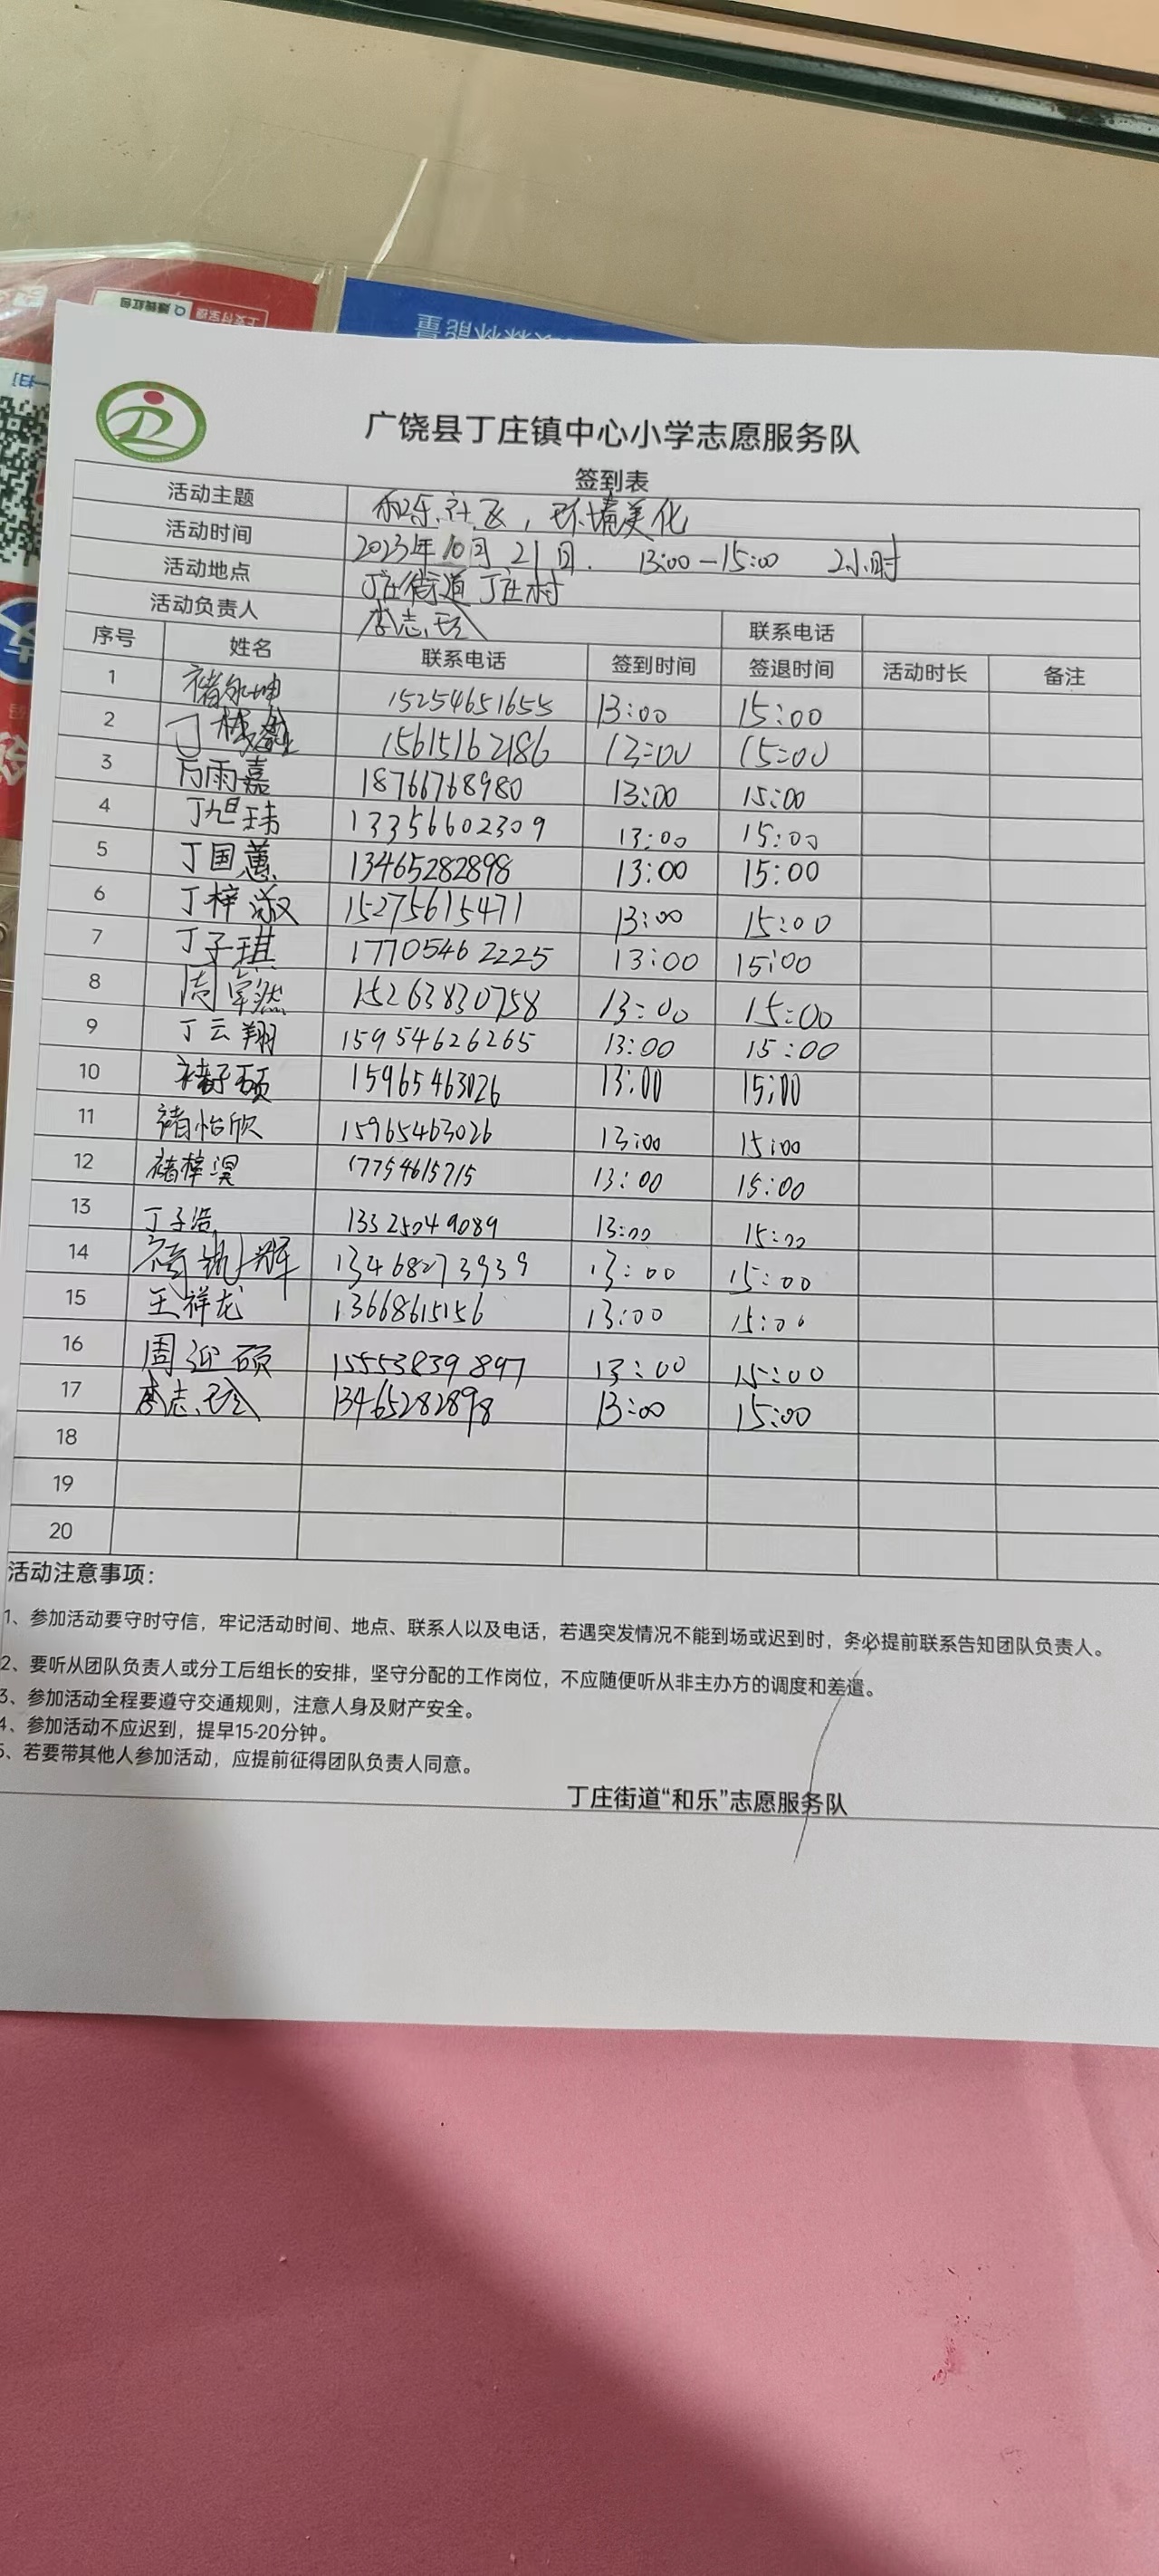 广饶县丁庄镇中心小学志愿服务队
签到表
活动主题 和乐社区，环境美化
活动时间 2023年10月21日. 13:00-15:00 2小时
活动地点 丁庄街道丁庄村
活动负责人 李志玲 联系电话
序号 姓名 联系电话 签到时间 签退时间 活动时长 备注
1 褚尔坤 15254651655 13:00 15:00
2 丁 15615162186 13:00 15:00
3 万雨嘉 18766768980 13:00 15:00
4 丁旭玮 13356602309 13:00 15:00
5 丁国蕙 13465282898 13:00 15:00
6 丁梓淑 15275615471 13:00 15:00
7 丁子琪 17705462225 13:00 15:00
8 周 然 15263830758 13:00 15:00
9 丁云翔 15954626265 13:00 15:00
10 褚子硕 15965463026 13:00 15:00
11 褚怡欣 15965463026 13:00 15:00
12 褚梓淏 17754615715 13:00 15:00
13 丁子浩 13325049089 13:00 15:00
14 13468273939 13:00 15:00
15 王祥龙 13668615156 13:00 15:00
16 周迎硕 15553839897 13:00 15:00
17 李志玲 13465282898 13:00 15:00
18
19
20
活动注意事项：
1、参加活动要守时守信，牢记活动时间、地点、联系人以及电话，若遇突发情况不能到场或迟到时，务必提前联系告知团队负责人。
2、要听从团队负责人或分工后组长的安排，坚守分配的工作岗位，不应随便听从非主办方的调度和差遣。
3、参加活动全程要遵守交通规则，注意人身及财产安全。
4、参加活动不应迟到，提早15-20分钟。
5、若要带其他人参加活动，应提前征得团队负责人同意。
丁庄街道“和乐”志愿服务队